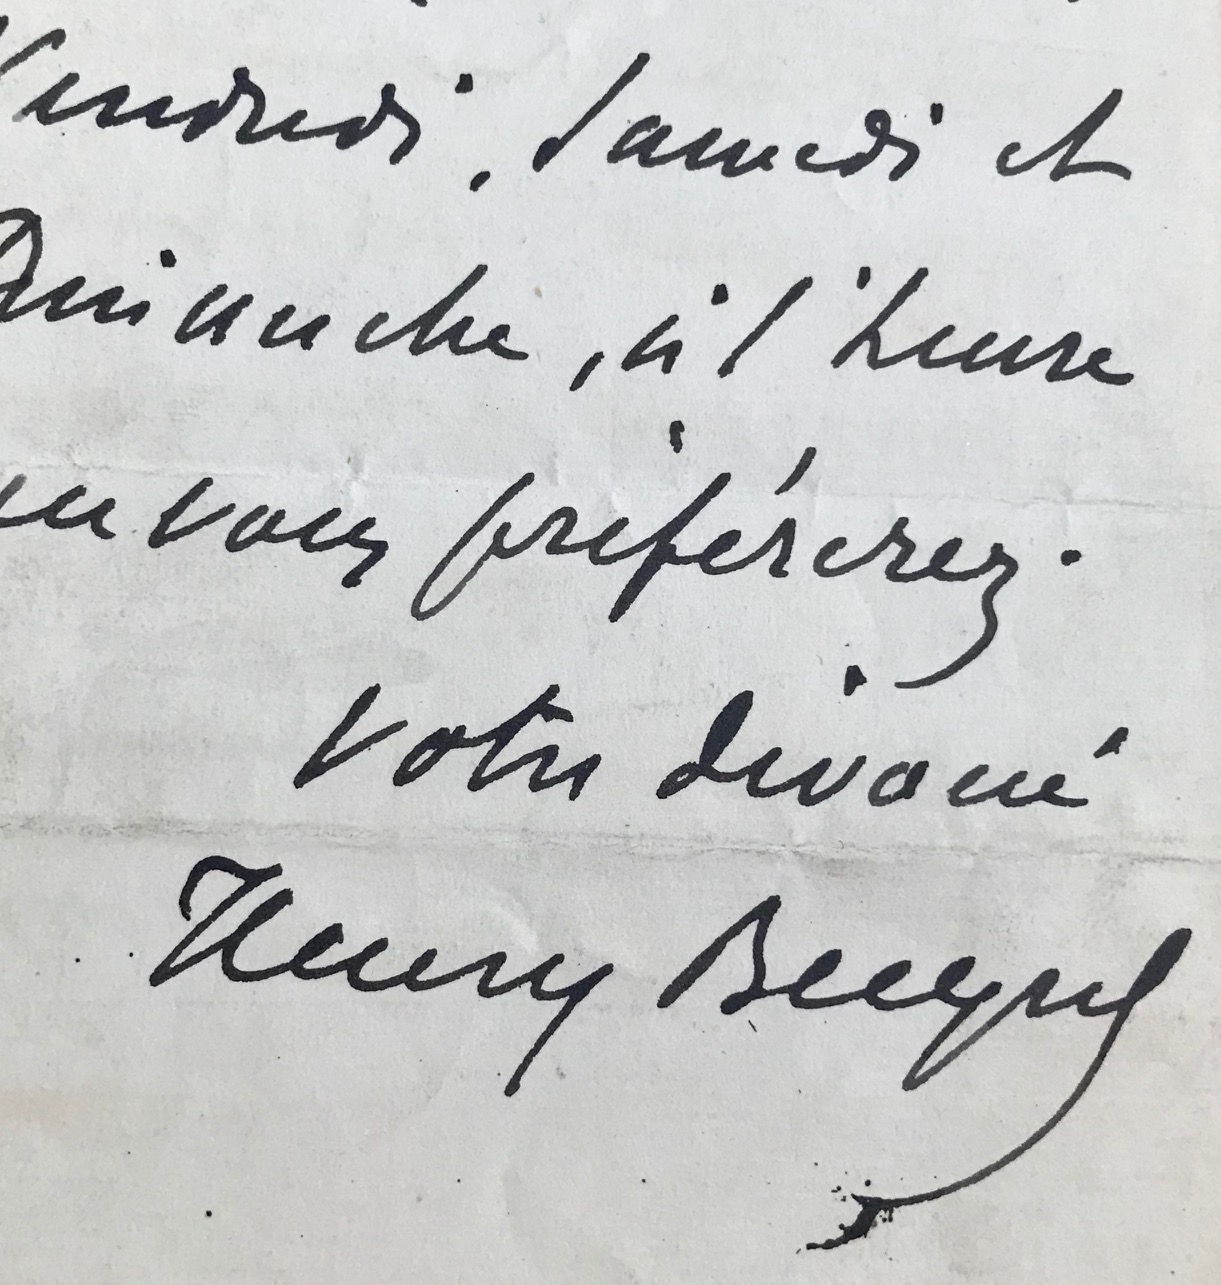 Vendredi, Samedi et
Dimanche, à l'heure
que vous préférerez.
Votre dévoué
Henry